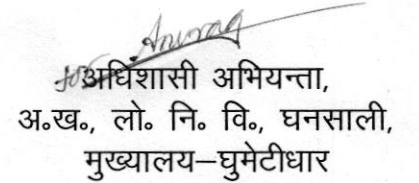 Anurag
for
अधिशासी अभियन्ता,
अ॰ख॰, लो॰ नि॰ वि॰, घनसाली,
मुख्यालय–घुमेटीधार